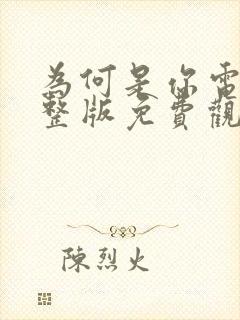 為何是你電
整版免費觀
陳烈火